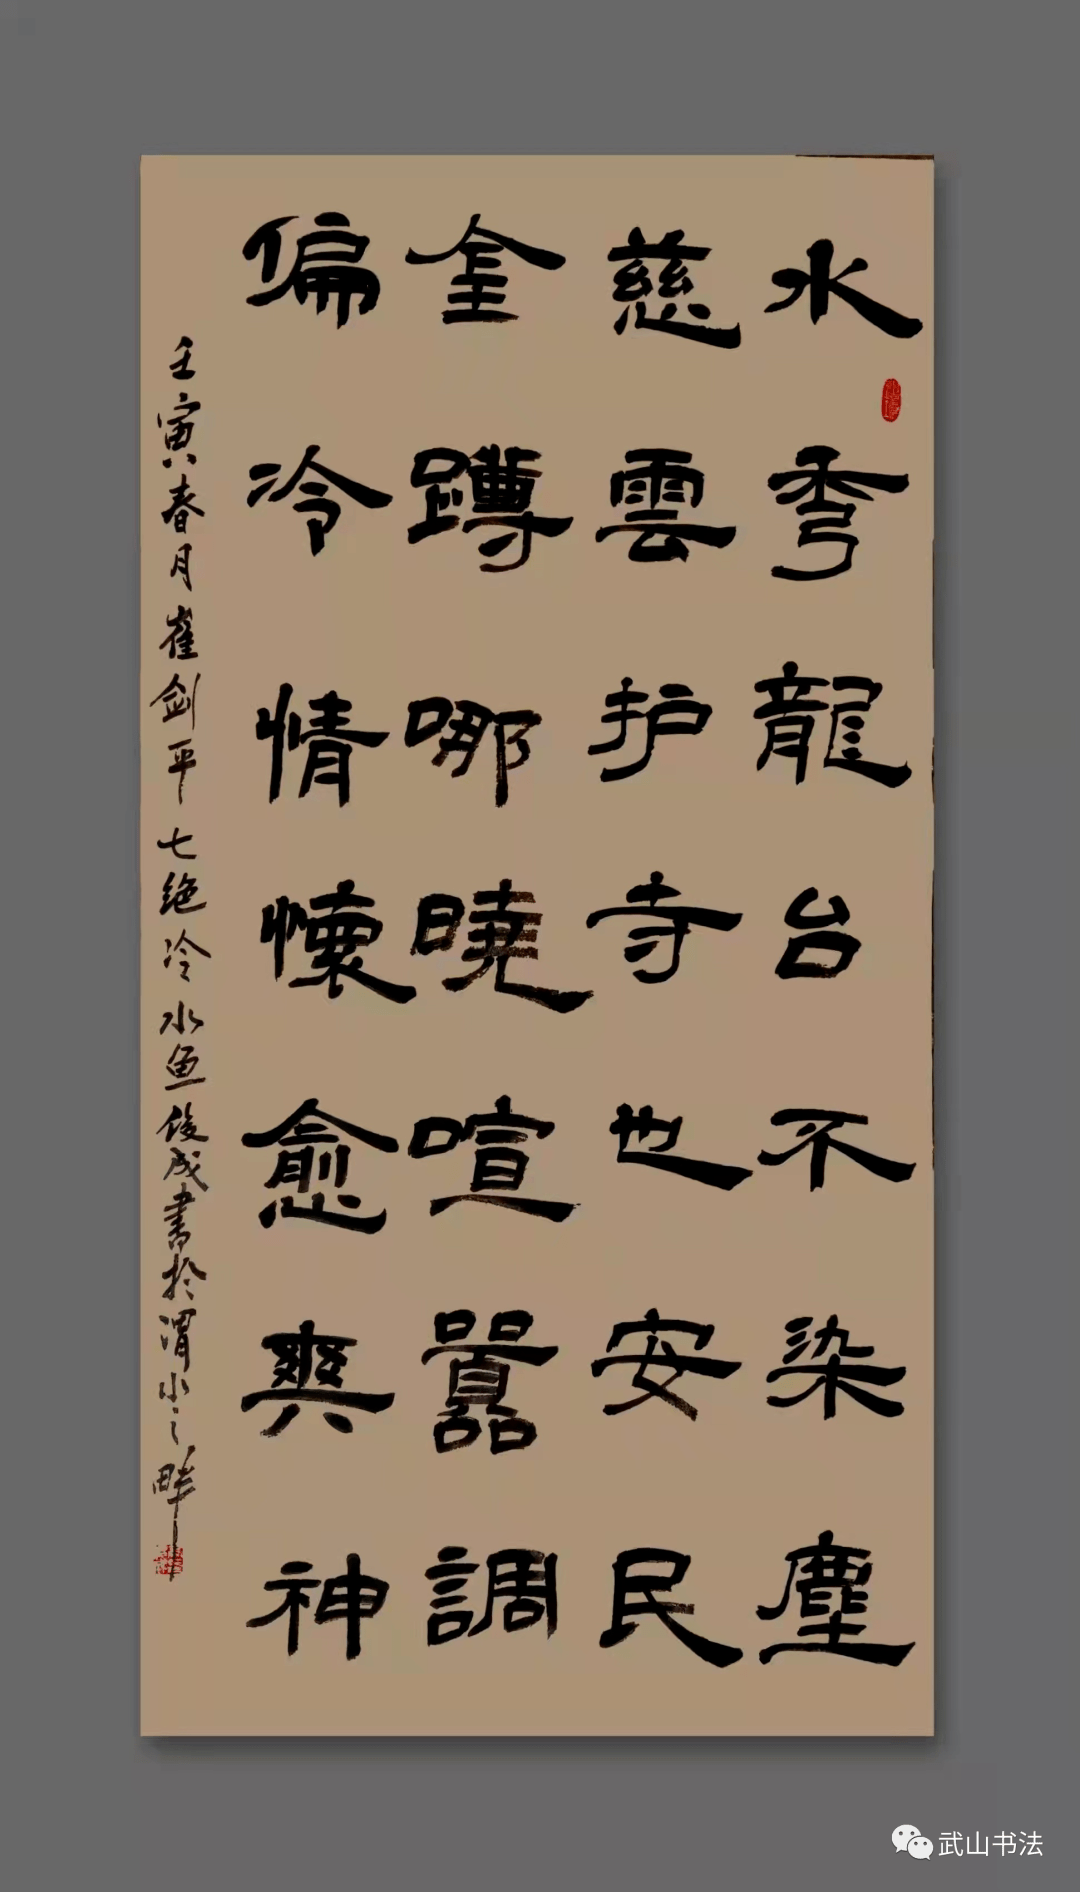 水秀龍台不染塵
慈雲护寺也安民
金蹲哪曉喧囂調
偏冷情懷愈爽神
壬寅春月崔剑平七绝冷水鱼俊成書於渭水之畔
武山书法